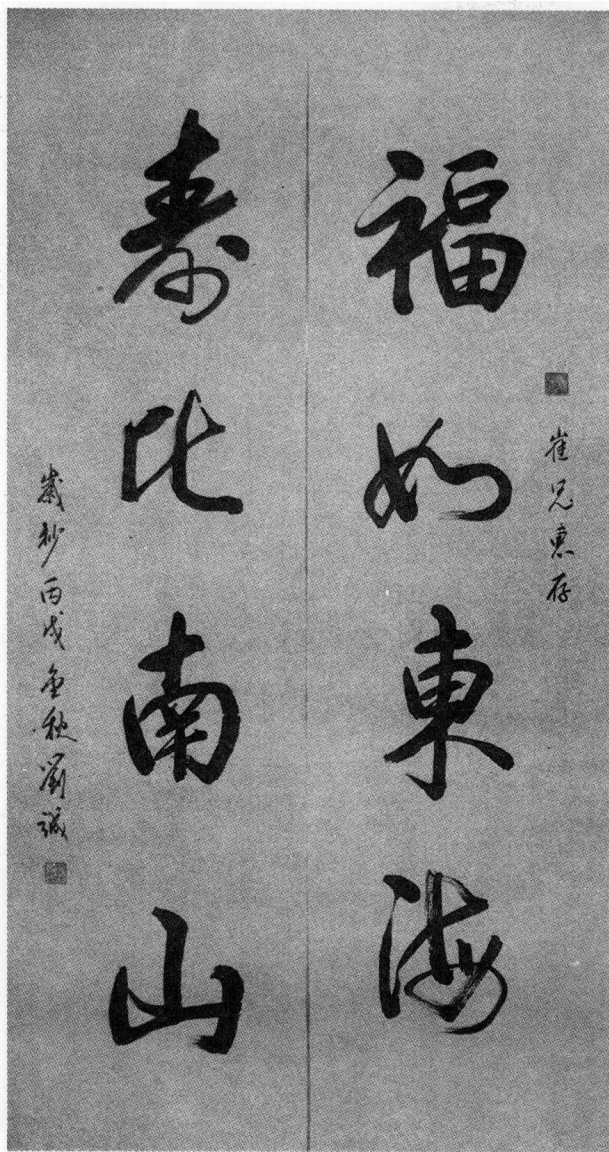 福如東海
崔兄惠存
寿比南山
歲杪丙戌金秋劉誠